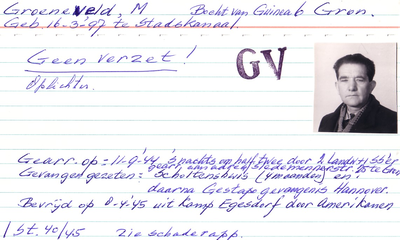 Groeneveld, M Becht van Guinea b Gron.
Geb. 16-3-'97 te Stadskanaal.
Geen verzet!
GV
Oplichter.
Gearr. op = 11-9-'44 's nachts om half twee door 2 Landw. + SS'er
gearr. van adres te Gron
Gevangen gezeten = Scholtenshuis (4 maanden) en
daarna Gestapo gevangenis Hannover.
Bevrijd op 8-4-'45 uit Kamp Egesdorf door Amerikanen
1 St. 40/45 zie schaderapp.